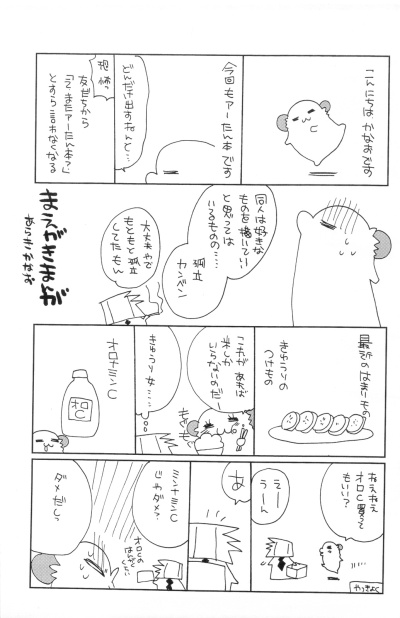 こんにちは かなおです
今回もアーたん本です
どんだけ出すねんと…
恐怖っ
友だちから
「またアーたん本っ」
とすら言われなくなる
同人は好きな
ものを描いてい
いと思っては
いるものの……
孤立
カンベン
大丈夫やで
もともと孤立
してたもん
まえがきまんが
最近のはまりもの
きゅうりの
つけもの
これが あれば
米しか
いらないのだー
もぐもぐ
きゅうり女…
オロナミンC
オロC
ねえねえ
オロC買って
もいい?
やっきょく
えー
うーん
あ
ミンナミンC
じゃダメ?
オロCの
ダメだしっ